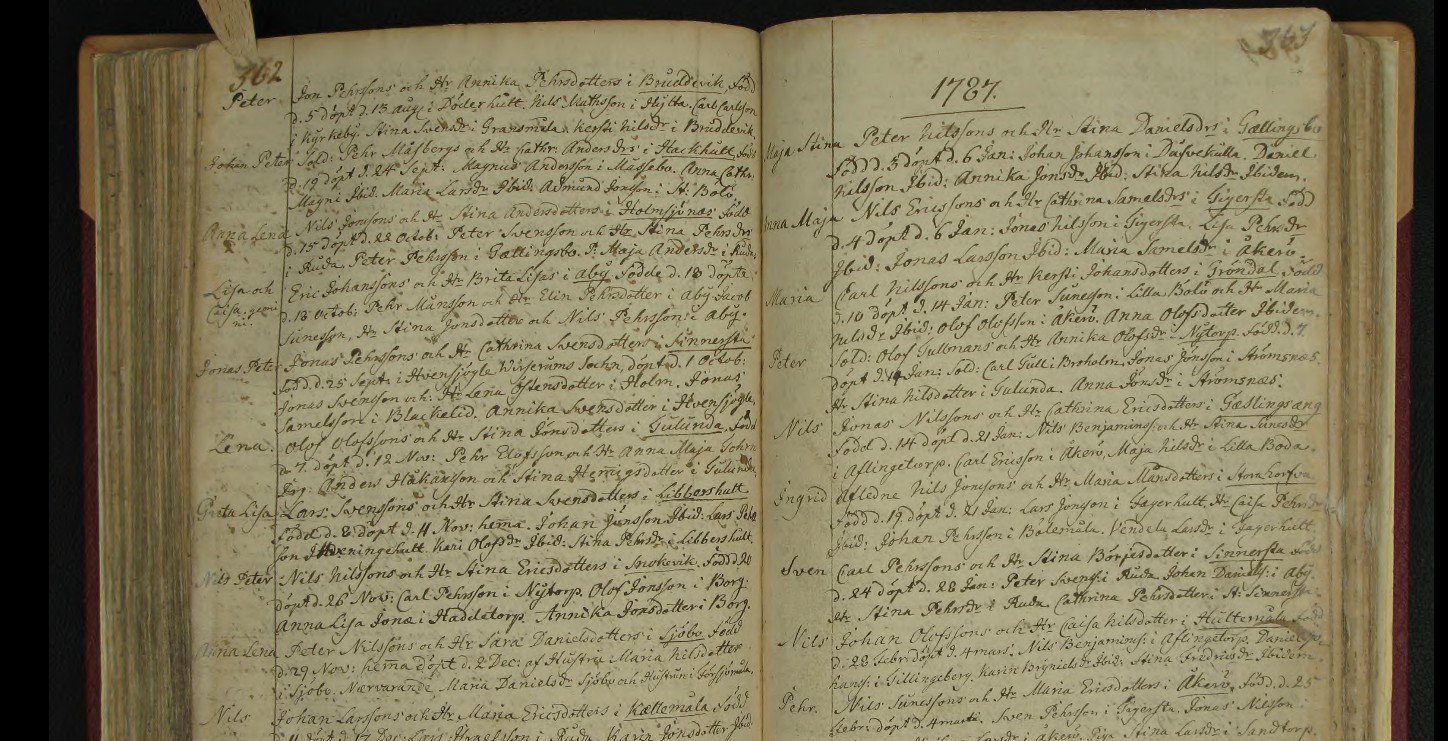 362
Peter Jon Pehrssons och Hr Annika Pehrsdotters i Bruddevik, född
d. 5 döpt d. 13 aug. i Döderhult. Nils Mathsson i Hytta. Carl Carlsson
i Kyrkeby. Stina Svensdr i Gransmåla. Kersti Nilsdr i Bruddevik.
Johan Peter Sold: Pehr Måsbergs och Hr Cathr: Andersdrs i Hackhult, född
d. 19 döpt d. 24 Sept: Magnus Andersson i Mussebo. Anna Cathr.
Magni Ibid. Maria Larsdr Ibid: Admund Jonsson i St: Bolö.
Anna Lena Nils Jonssons och Hr Stina Andersdotters i Holmsjönäs född
d. 15 döpt d. 22 Octob: Peter Svensson och Hr Stina Pehrsdr
i Ruda. Peter Pehrsson i Gällingsbo. P. Maja Andersdr i Ruda.
Lisa och Eric Johanssons och Hr Brita Lisas i Åby. födde d. 18 döpte
Caisa. gemi d. 18 Octob: Pehr Månsson och Hr Elin Pehrsdotter i Åby. Jacob
ni. Sunesson, Hr Stina Jonsdotter och Nils Pehrsson i Åby.
Jonas Peter Jonas Pehrssons och Hr Cathrina Svensdotters i Sinnersta
född d. 25 Sept: i Hvensjögle Wisserums Sochn, döpt d. 1 Octob:
Jonas Svensson och Hr Lena Ostensdotter i Holm. Jonas
Samelsson i Blackelid. Annika Svensdotter i Hvensjögle.
Lena. Olof Olofssons och Hr Stina Jönsdotters i Gulunda, född
d. 7. döpt d. 12 Nov: Pehr Elofsson och Hr Anna Maja
Anders Håkansson och Stina Hemmigsdotter i Gulunda
Greta Lisa Lars Svenssons och Hr Stina Svensdotters i Libbershult
född d. 8 döpt d. 11 Nov: hema. Johan Jönsson Ibid: Lars
son i Hveningehult. Kari Olofsdr Ibid: Stina Pehrsdr i Libbershult.
Nils Peter Nils Nilssons och Hr Stina Ericsdotters i Snokevik. född d. 20
döpt d. 26 Nov: Carl Pehrsson i Nÿtorp. Olof Jonsson i Borg.
Anna Lisa Jonæ i Haddetorp. Annika Jonsdotter i Borg.
Anna Lena Peter Nilssons och Hr Sara Danielsdotters i Sjöbo född
d. 29 Nov: hema döpt d. 2 Dec: af Hustru Maria Nilsdotter
i Sjöbo. Närvarande Maria Danielsdr Sjöbo och Hustrun i Försjömåla.
Nils Johan Larssons och Hr Maria Ericsdotters i Källemåla född
d. 11 döpt d. 17 Dec: Lars Israelsson i Ruda. Karin Jönsdotter Ibid:
363
1787.
Maja Stina Peter Nilssons och Hr Stina Danielsdrs i Gællingsbo
född d. 5 döpt d. 6 Jan: Johan Johansson i Dufvekulla. Daniel
Nilsson Ibid: Annika Jonsdr Ibid: Stina Nilsdr Ibidem.
Anna Maja Nils Ericssons och Hr Cathrina Samelsdrs i Gigersta född
d. 4 döpt d. 6 Jan: Jonas Nilsson i Gigersta. Lisa Pehrsdr
Ibid: Jonas Larsson Ibid: Maria Samelsdr i Åkerö.
Maria Carl Nilssons och Hr Kersti Johansdotters i Gröndal född
d. 10 döpt d. 14 Jan: Peter Sunesson i Lilla Bolö och Hr Maria
Nilsdr Ibid: Olof Olofsson i Åkerö. Anna Olofsdotter Ibidem.
Peter Sold: Olof Gullmans och Hr Annika Olofsdr Nÿtorp. född d. 7
döpt d. 14 Jan: Sold: Carl Gull i Broholm. Jonas Jönsson i Strömsnæs.
Hr Stina Nilsdotter i Gulunda. Anna Jönsdr i Strömsnæs.
Nils Jonas Nilssons och Hr Cathrina Ericsdotters i Gæslingsæng
född d. 14 döpt d. 21 Jan: Nils Benjamins: och Hr Stina Sunesdr
i Aflingetorp. Carl Ericsson i Åkerö, Maja Nilsdr i Lilla Boda.
Ingrid Afledne Nils Jonssons och Hr Maria Månsdotters i Stora Korfva
född d. 19 döpt d. 21 Jan: Lars Jonsson i Fagerhult. Hr Caisa Pehrsdr
Ibid: Johan Pehrsson i Bötemåla. Vendela Larsdr i Fagerhult
Sven Carl Pehrssons och Hr Stina Börjesdotter i Sinnersta född
d. 24 döpt d. 28 Jan: Peter Svens: i Ruda. Johan Daniels: i Åby.
Hr Stina Pehrsdr i Ruda. Cathrina Pehrsdotter i St: Sinnersta.
Nils Johan Olofssons och Hr Caisa Nilsdotter i Hultemåla född
d. 28 Febr: döpt d. 4 mars. Nils Benjamins: i Aflingetorp. Daniel Jo
hans: i Gillingeberg. Karin Brynielsdr Ibid: Stina Fredricsdr Ibidem.
Pehr. Nils Sunessons och Hr Maria Ericsdotters i Åkerö. född d. 25
Febr: döpt d. 4 martii. Sven Pehrsson i Gigersta. Jonas Nilsson i
Larsdr i Åkerö. Piga Stina Larsdr i Sandtorp.